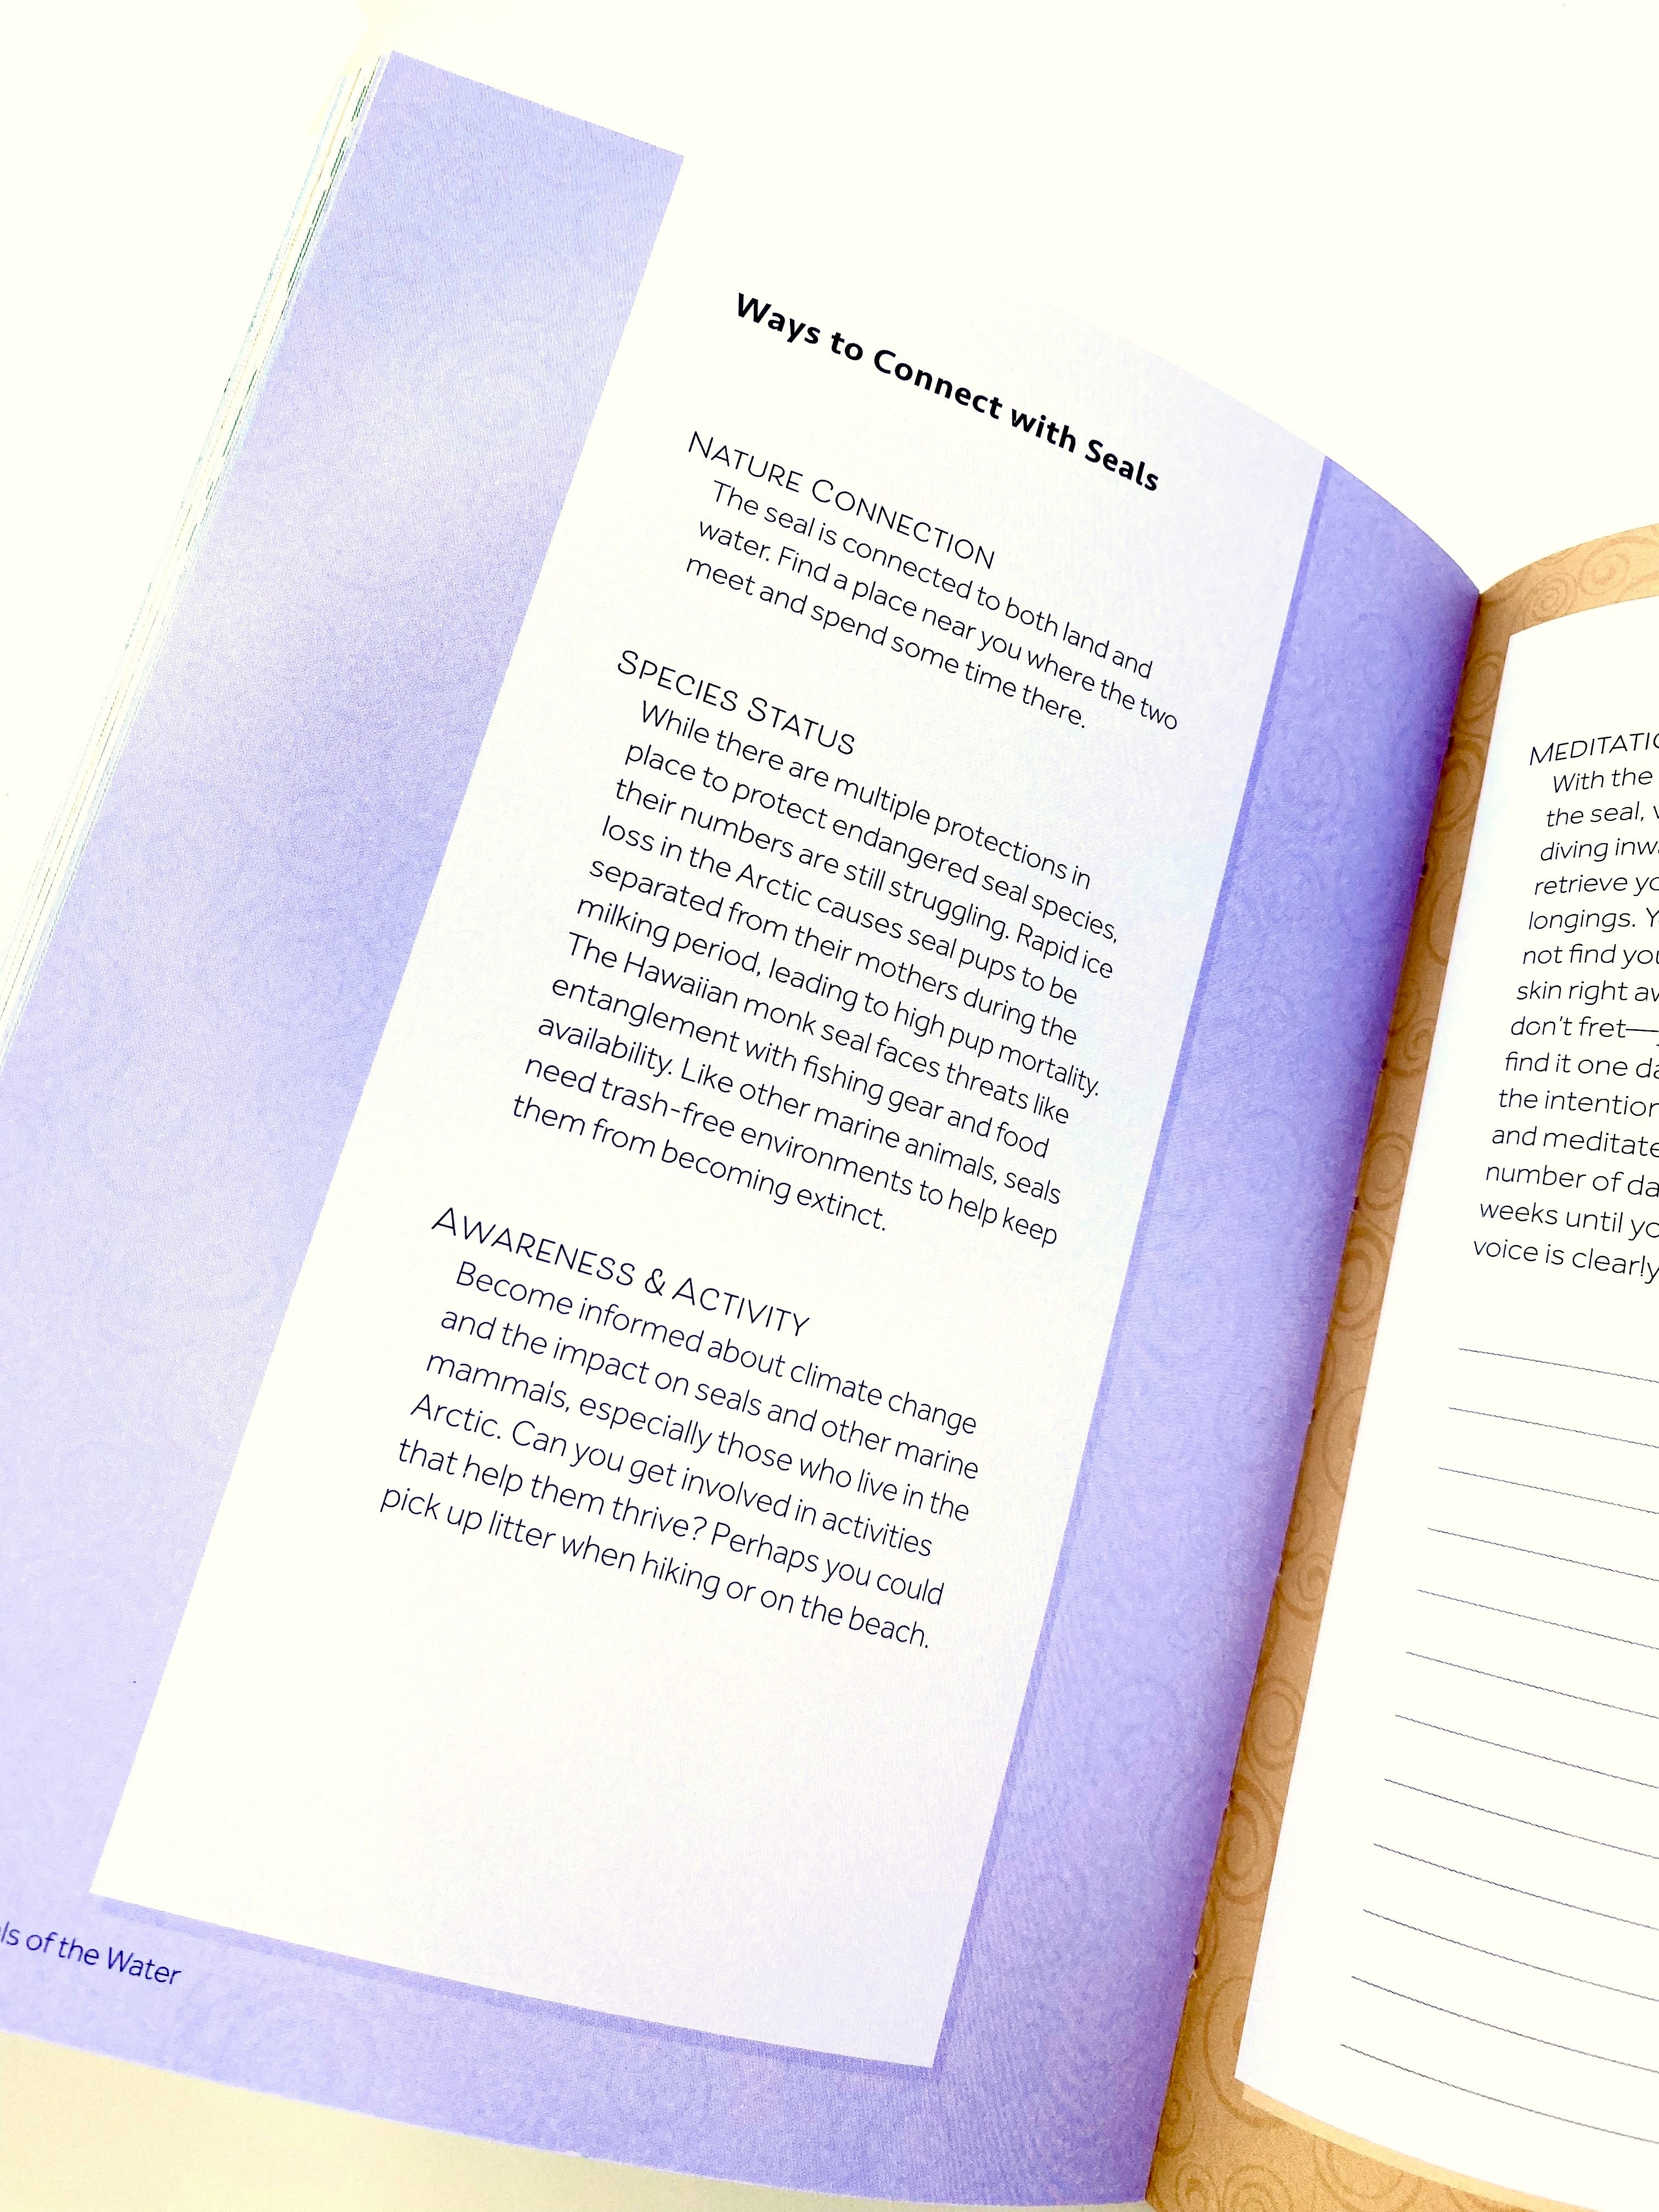 Ways to Connect with Seals
NATURE CONNECTION
The seal is connected to both land and
water. Find a place near you where the two
meet and spend some time there.
SPECIES STATUS
While there are multiple protections in
place to protect endangered seal species,
their numbers are still struggling. Rapid ice
loss in the Arctic causes seal pups to be
separated from their mothers during the
milking period, leading to high pup mortality.
The Hawaiian monk seal faces threats like
entanglement with fishing gear and food
availability. Like other marine animals, seals
need trash-free environments to help keep
them from becoming extinct.
AWARENESS & ACTIVITY
Become informed about climate change
and the impact on seals and other marine
mammals, especially those who live in the
Arctic. Can you get involved in activities
that help them thrive? Perhaps you could
pick up litter when hiking or on the beach.
of the Water
With the
the seal,
diving
retrieve
longings.
not find
skin right
don't fret—
find it one
the
and
number of
weeks until
voice is clearly